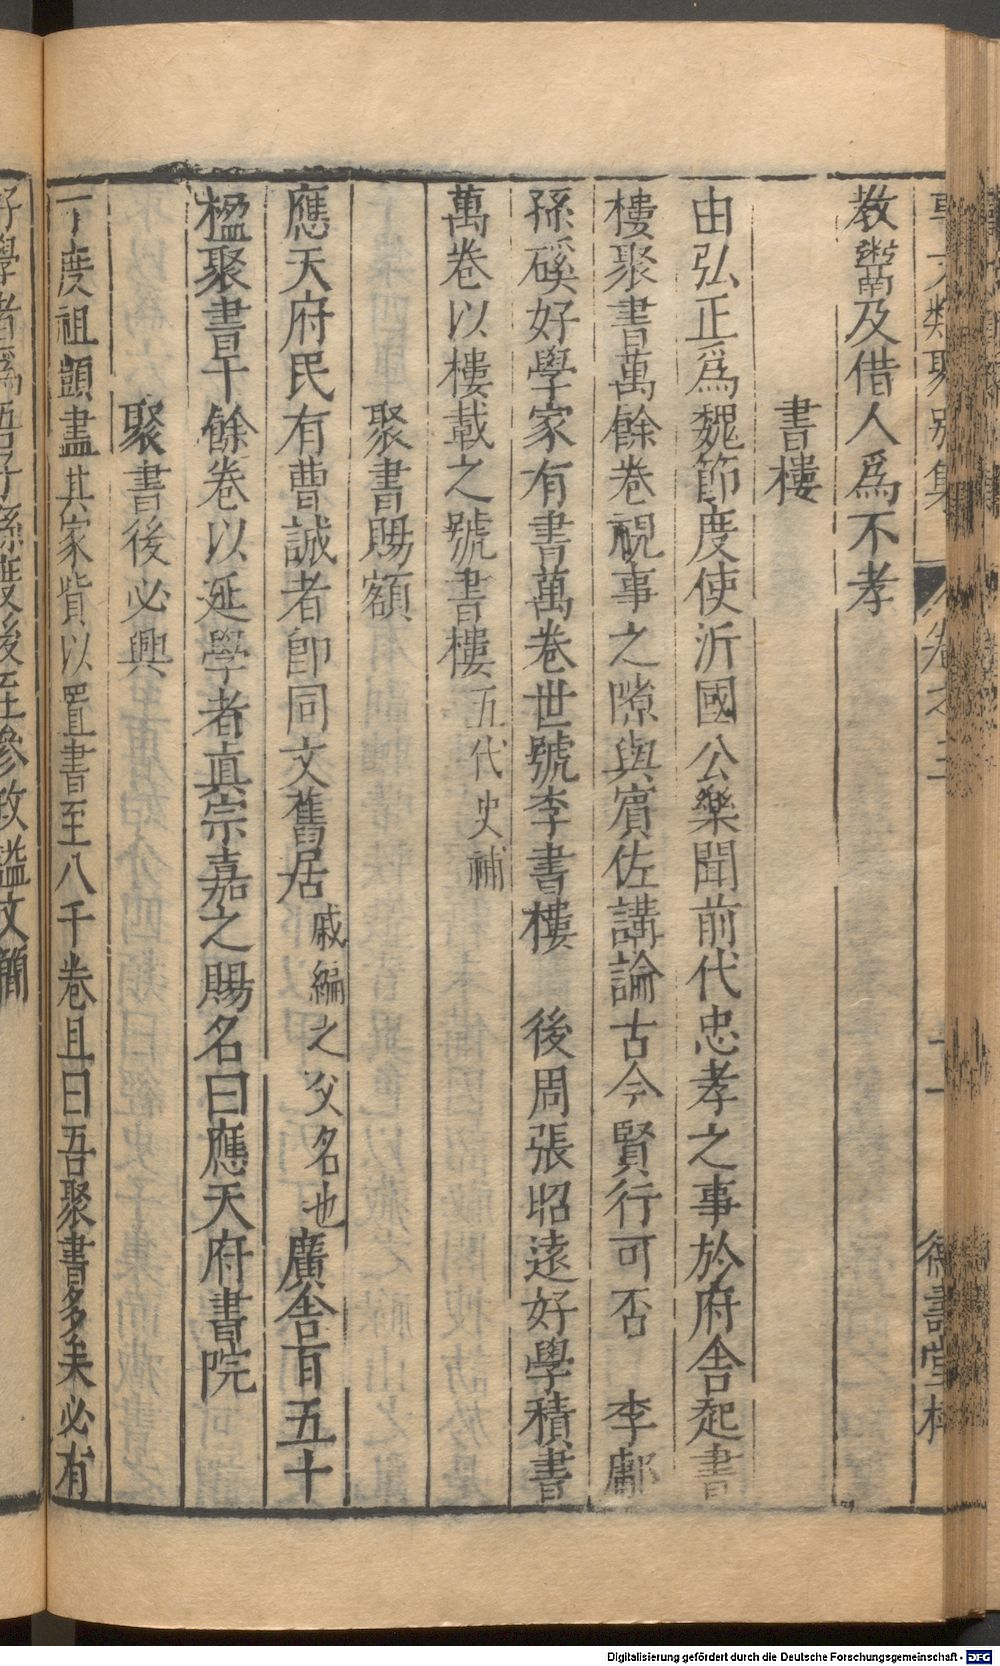 事文類聚別集 卷之三 十一 德壽堂梓
教鬻及借人為不孝
書樓
由弘正爲魏節度使沂國公樂聞前代忠孝之事於府舍起書
樓聚書萬餘卷視事之隙與賓佐講論古今賢行可否 李鄘
孫磎好學家有書萬卷世號李書樓 後周張昭遠好學積書
萬卷以樓載之號書樓五代史補
聚書賜額
應天府民有曹誠者卽同文舊居戚編之父名也廣舍百五十
楹聚書千餘卷以延學者眞宗嘉之賜名曰應天府書院
聚書後必興
丁度祖顗盡其家貲以置書至八千卷且曰吾聚書多矣必有
好學者爲吾子孫度後至參政諡文簡
Digitalisierung gefördert durch die Deutsche Forschungsgemeinschaft - DFG